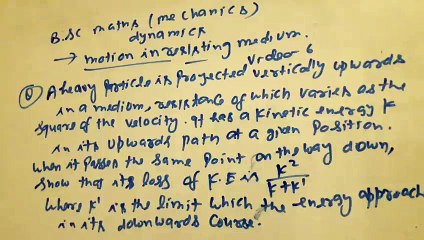 B.SC maths (mechanics)
dynamics
→ motion in resisting medium.
Video 6
Q A heavy Particle is Projected vertically upwards
in a medium, resistance of which varies as the
square of the velocity. It has a kinetic energy K
in its upwards path at a given Position.
when it Passes the same Point on the way down,
show that its loss of K.E is K²/K+K'
where K' is the limit which the energy approach
in its downwards course.